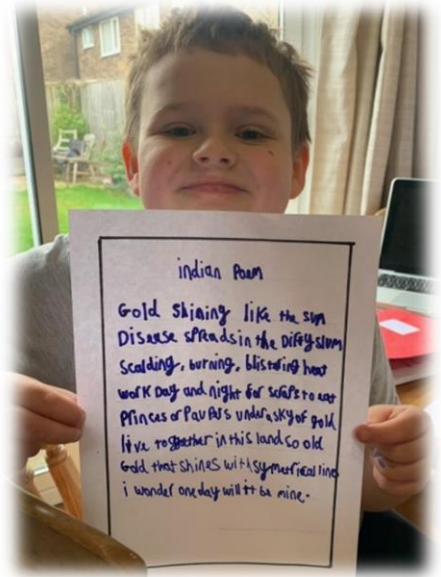 indian Poem
Gold shining like the sun
Disease spreads in the Dirty slum
Scalding, burning, blistering heat
work Day and night for scraps to eat
Princes or Paupers under a sky of gold
live together in this land so old
Gold that shines with symetrical lines
i wonder one day will it be mine.